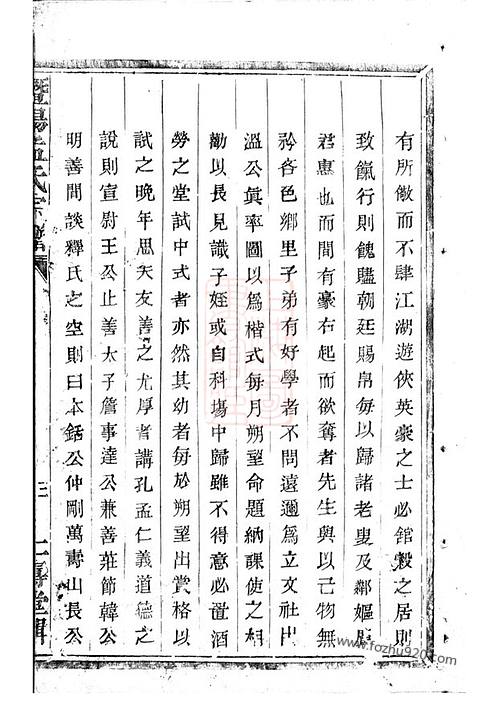 有所儆而不肆江湖遊俠英豪之士必館穀之居則
致餼行則餽贐朝廷賜帛每以歸諸老叟及鄰嫗
君惠也而間有豪右起而欲奪者先生與以己物無
矜吝色鄉里子弟有好學者不問遠邇為立文社出
溫公眞率圖以為楷式每月朔望命題納課使之相
勸以長見識子姪或自科塲中歸雖不得意必置酒
勞之堂試中式者亦然其幼者每於朔望出賞格以
試之晚年思天友善之尤厚者講孔孟仁義道德之
說則宣尉王公止善太子詹事達公兼善莊節韓公
明善間談釋氏之空則曰本銛公仲剛萬壽山長公
暨陽孟氏宗譜
三
www.fozhu920.com